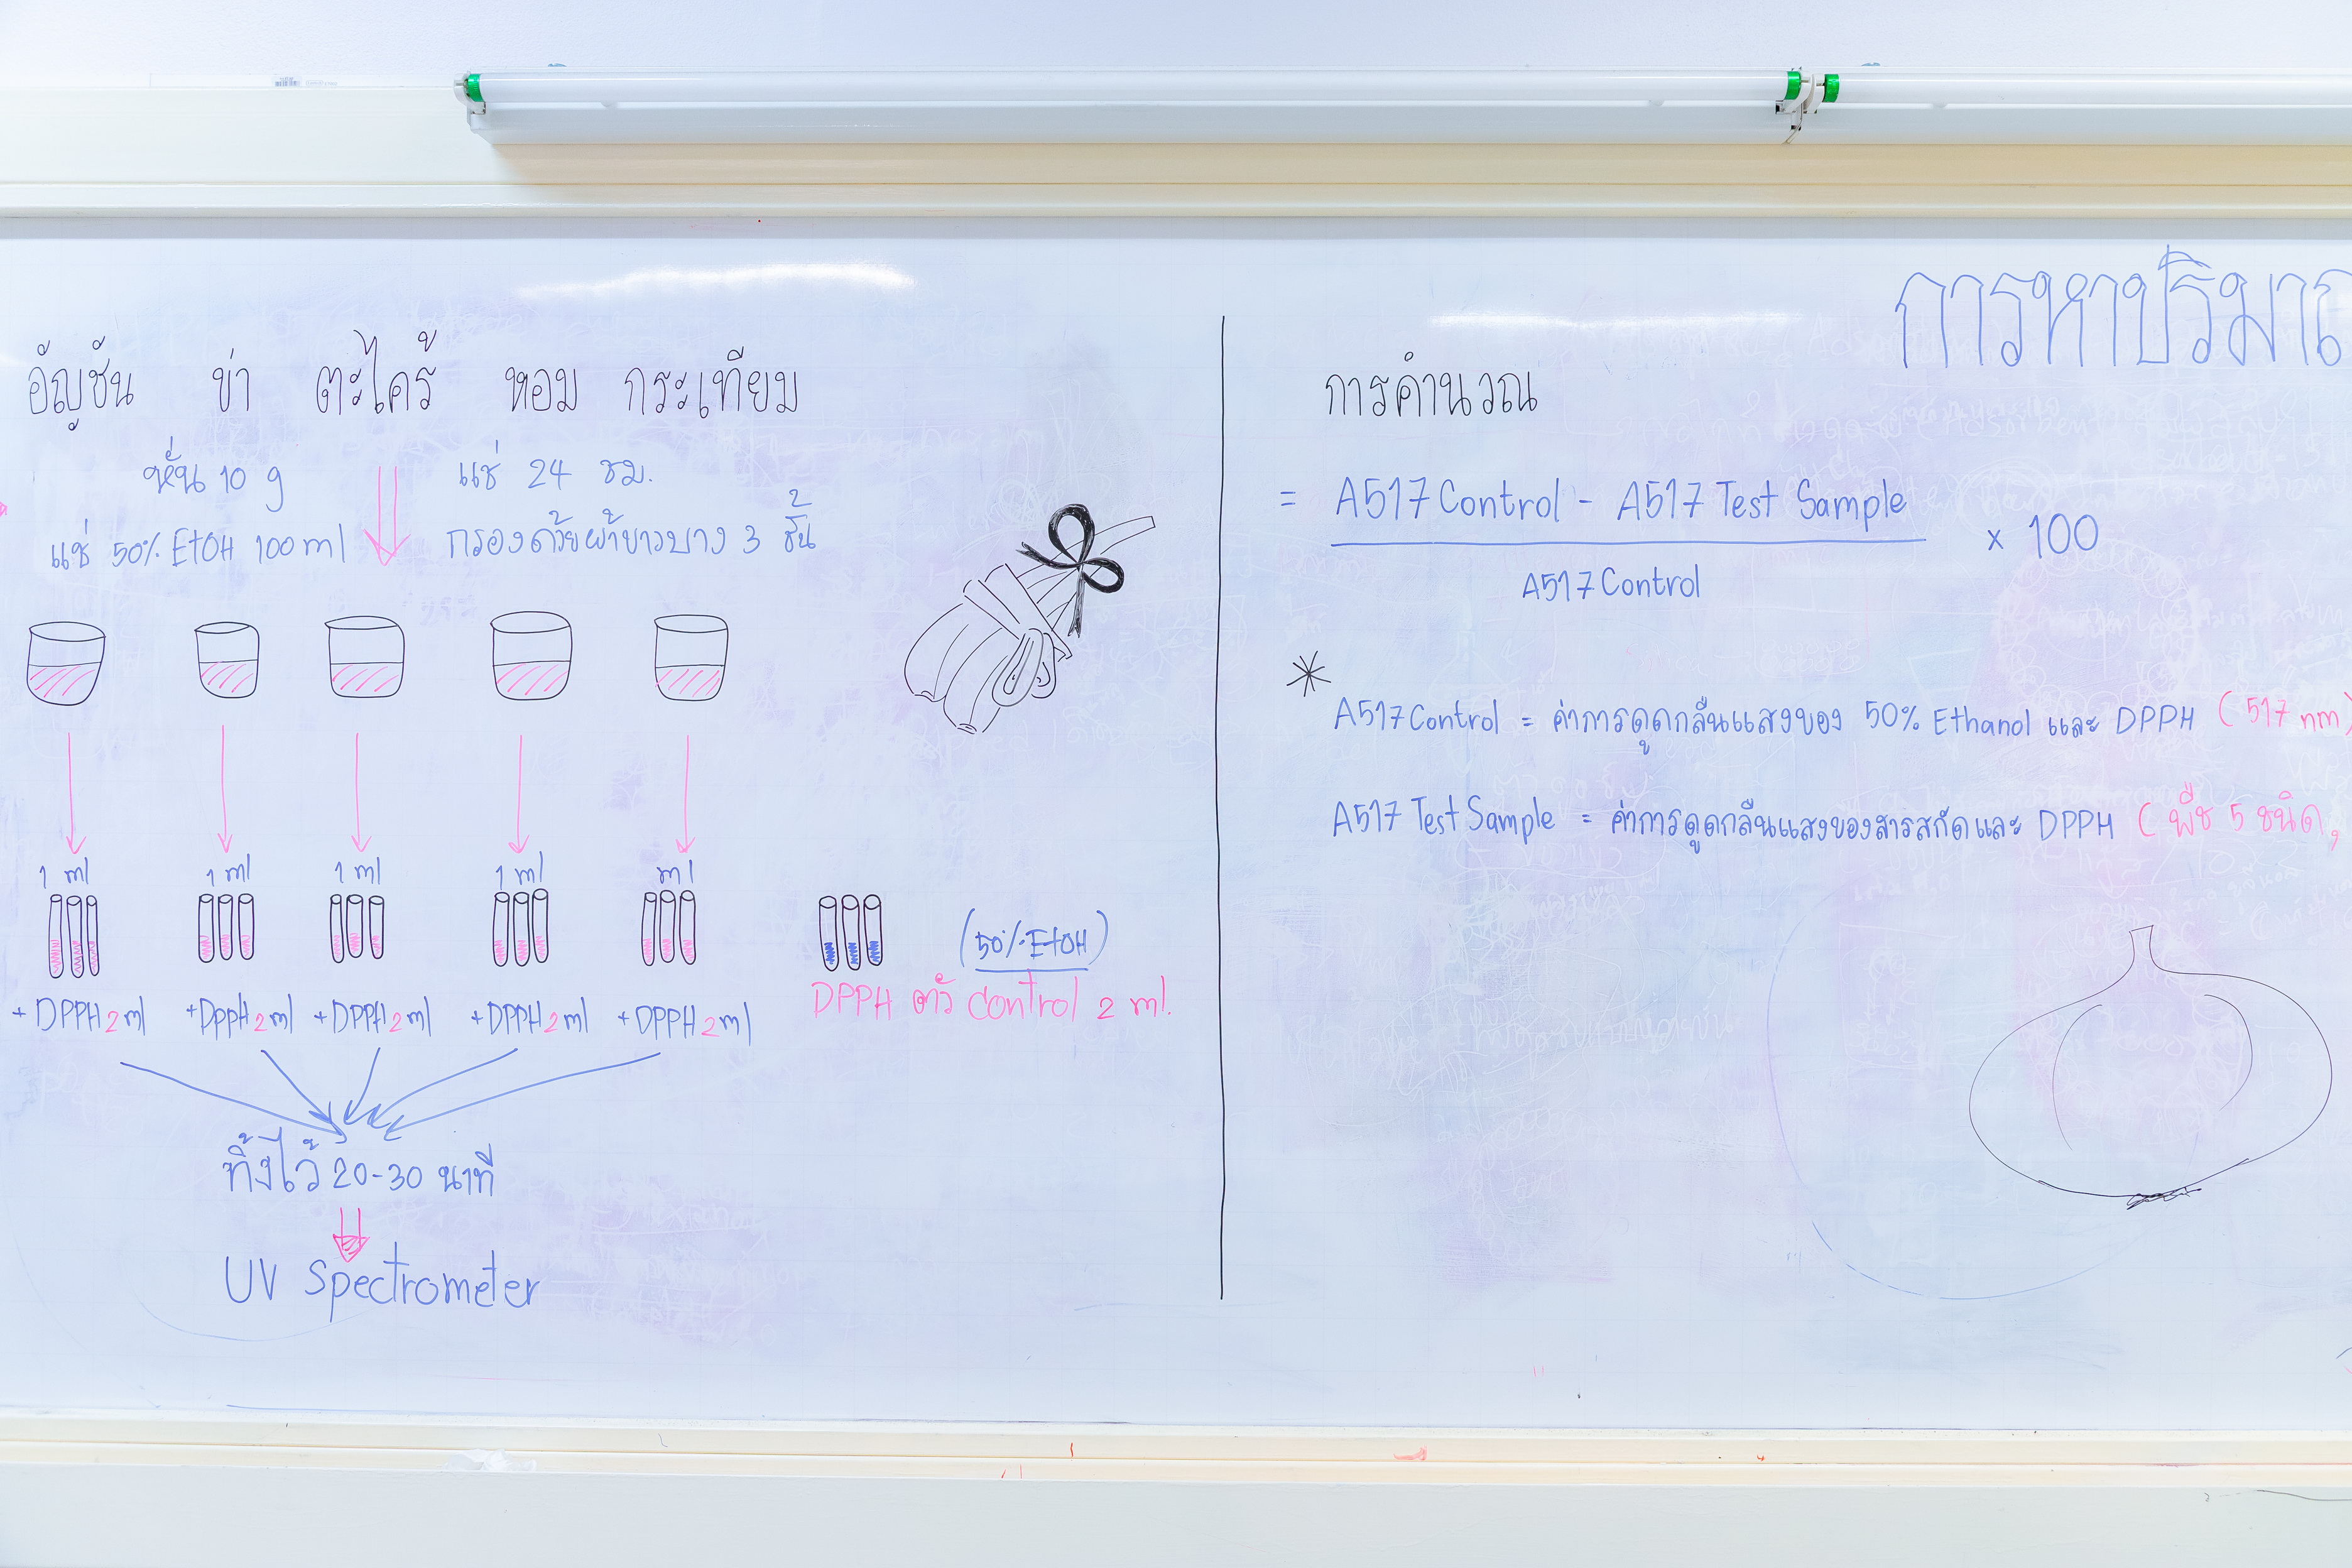 อัญชัน ข่า ตะไคร้ หอม กระเทียม
หั่น 10 g
แช่ 50% EtOH 100 ml
แช่ 24 ชม.
กรองด้วยผ้าขาวบาง 3 ชั้น
1 ml 1 ml 1 ml 1 ml ml
+ DPPH 2 ml +DppH 2 ml + DPPH 2 ml + DPPH 2 ml + DPPH 2 ml
(50% EtOH)
DPPH ตัว control 2 ml.
ทิ้งไว้ 20-30 นาที
UV Spectrometer
การหาปริมาณ
การคำนวณ
= A517 Control - A517 Test Sample
A517 Control
× 100
* A517 Control = ค่าการดูดกลืนแสงของ 50% Ethanol และ DPPH (517 nm)
A517 Test Sample = ค่าการดูดกลืนแสงของสารสกัดและ DPPH (พืช 5 ชนิด,